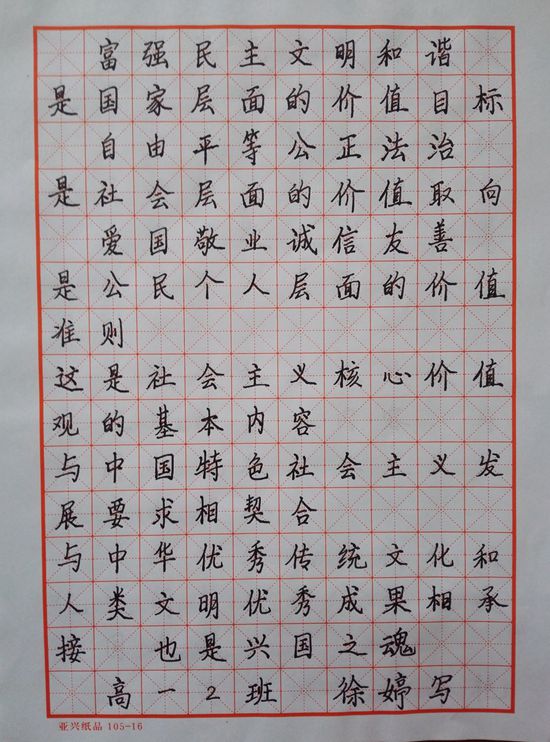 富强民主文明和谐
是国家层面的价值目标
自由平等公正法治
是社会层面的价值取向
爱国敬业诚信友善
是公民个人层面的价值
准则
这是社会主义核心价值
观的基本内容
与中国特色社会主义发
展要求相契合
与中华优秀传统文化和
人类文明优秀成果相承
接 也是兴国之魂
高一2班 徐婷写
亚兴纸品 105-16